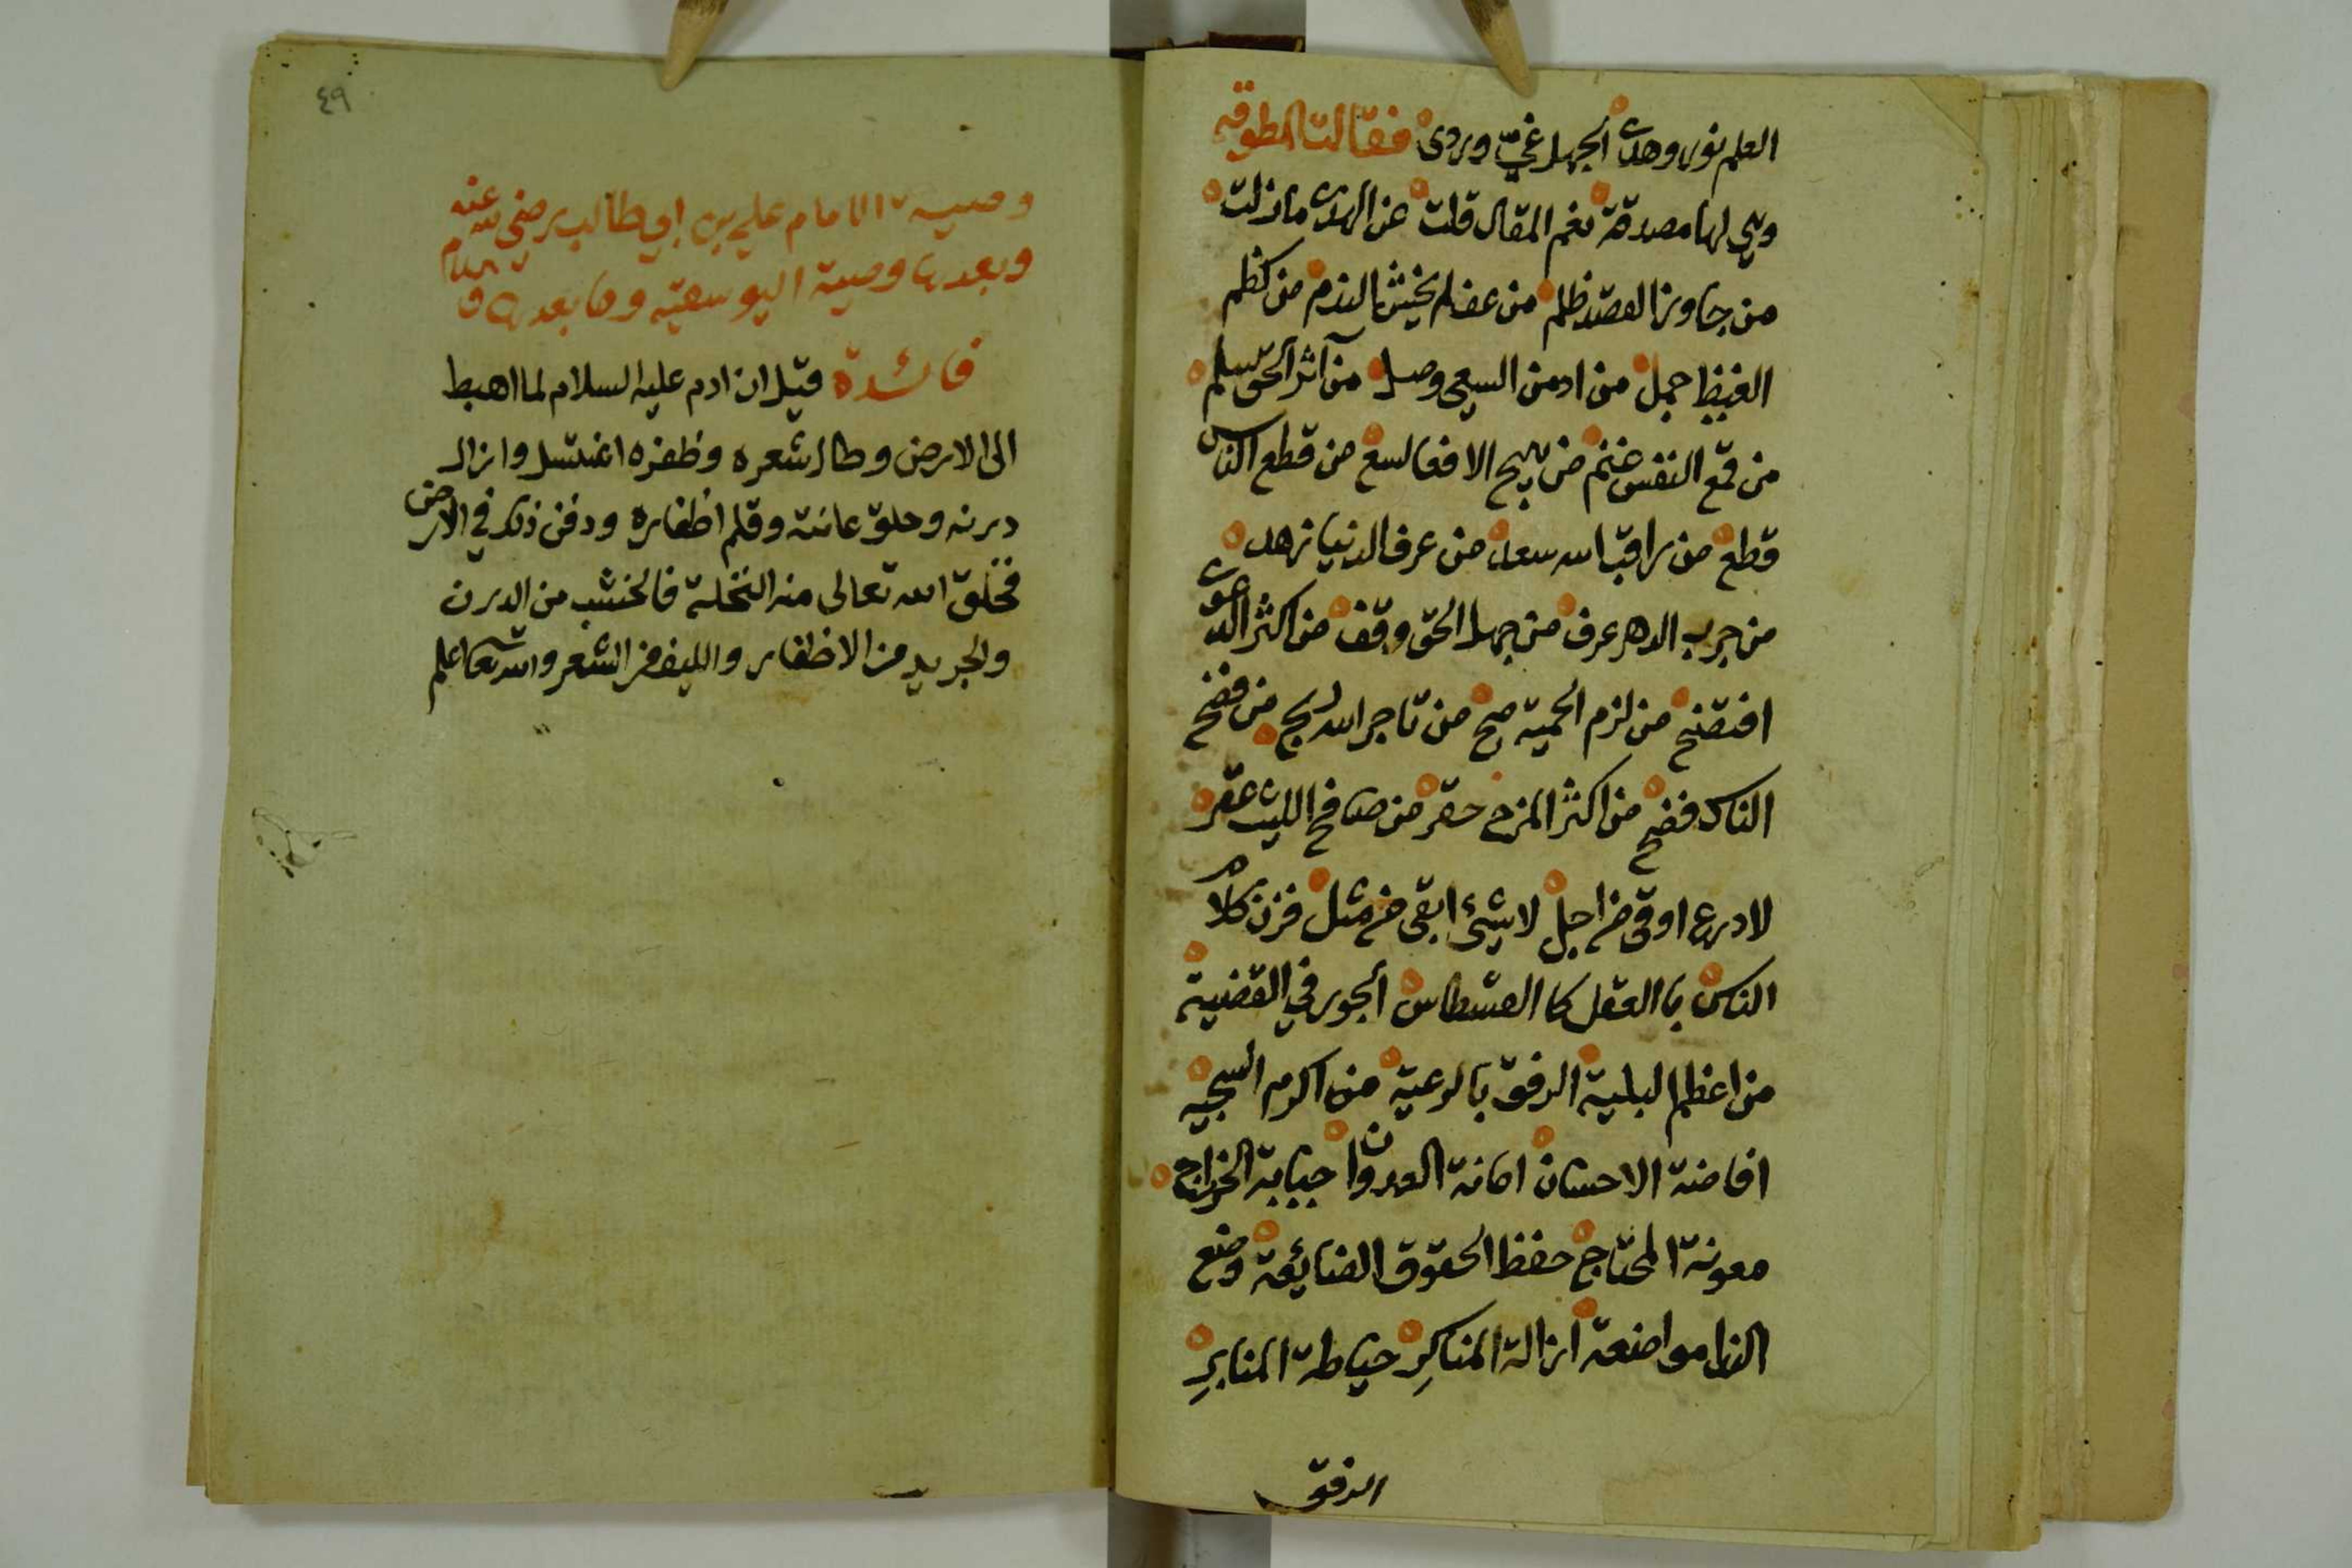 العلم نور وهدى الجهل غيّ وردى فقالت المطوقه
وهي لها مصدقة نعم المقال قلت عن الهدى ما زلت
من جاوز القصد ظلم من عف لم يخش الندم من كظم
الغيظ حمل من ادمن السعي وصل من آثر الحق سلم
من قمع النفس غنم من يهج الافعا لسع من قطع الناس
قطع من راقب الله سعد من عرف الدنيا زهد
من جرب الدهر عرف من جهل الحق وقف من اكثر الدعوى
افتضح من لزم الحمية صح من تاجر الله ربح من فضح
الناس فضح من اكثر المزح حقر من صافح الليث عقر
لا درع اوقى من اجل لا شيئ ابقى من مثل فزن كلام
الناس با العقل كا القسطاس الجور في القضية
من اعظم البلية الرفق بالرعية من اكرم السجيه
افاضة الاحسان امانة العدوان جباية الخراج
معونة المحتاج حفظ الحقوق الضايعة وضع
الندا مواضعة ازالة المناكر حياطة المنابر
الرفق
٤٩
وصية الامام علي بن ابي طالب رضي الله عنه
وبعدها وصية اليوسفيه وما بعدها
فائدة قيل ان ادم عليه السلام لما اهبط
الى الارض وطال شعره وظفره اغتسل وازال
درنه وحلق عانته وقلم اظفاره ودفن ذلك في الارض
فخلق الله تعالى منه النخلة فالخشب من الدرن
والجريد من الاظفار والليف من الشعر والله تعا اعلم